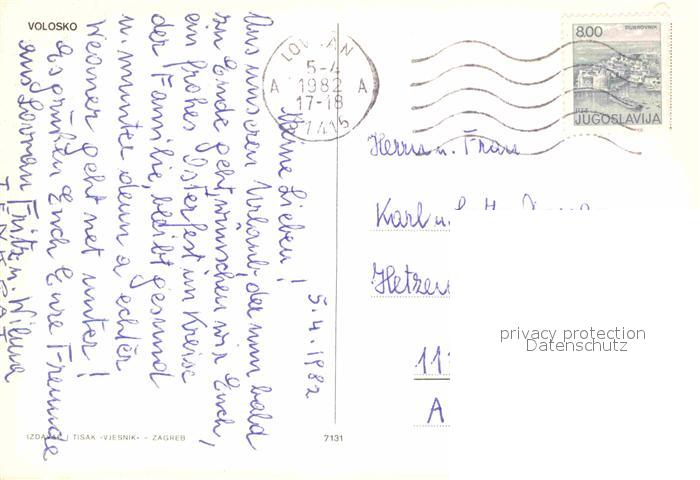 VOLOSKO
5.4.1982
Meine Lieben!
Aus unserem Urlaub, der nun bald
zu Ende geht, wünschen wir Euch,
ein frohes Osterfest im Kreise
der Familie, bleibt gesund
u. munter denn a echter
Weaner geht net unter!
Es grüßen Euch Eure Freunde
aus Lovran Fritz u. Wilma
LOVRAN
5-4
A 1982 A
17-18
51415
8.00
DUBROVNIK
JUGOSLAVIJA
Herrn u. Frau
Karl u.
A
privacy protection
Datenschutz
TISAK «VJESNIK» - ZAGREB
7131